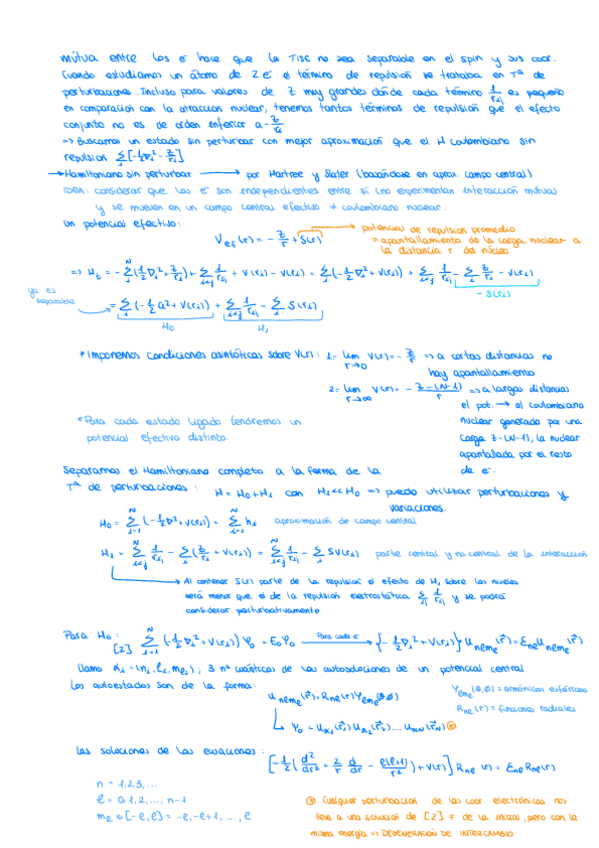 mútua entre los e⁻ hace que la TISE no sea separable en el spin y sus coor.
Cuando estudiamos un átomo de 2 e⁻ el término de repulsión se trataba en Tª de
perturbaciones. Incluso para valores de Z muy grandes donde cada término 1/r_ij es pequeño
en comparación con la atracción nuclear, tenemos tantos términos de repulsión que el efecto
conjunto no es de orden inferior a - Z/r_i
=> Buscamos un estado sin perturbar con mejor aproximación que el H coulombiano sin
repulsión Σ_i [-½∇_i² - Z/r_i]
→ Hamiltoniano sin perturbar → por Hartree y Slater (basándose en aprox. campo central)
IDEA: considerar que los e⁻ son independientes entre sí (no experimentan interacción mutua)
y se mueven en un campo central efectivo ≠ coulombiano nuclear.
Un potencial efectivo:
V_ef(r) = - Z/r + S(r)
potencial de repulsión promedio
= apantallamiento de la carga nuclear a
la distancia r del núcleo
=> H_t = - Σ_i^N (½∇_i² + Z/r_i) + Σ_{i<j} 1/r_ij + V(r_i) - V(r_i) = Σ_i (-½∇_i² + V(r_i)) + Σ_{i<j} 1/r_ij - Σ_i Z/r_i - V(r_i)
- S(r_i)
ya es
separable
= Σ_i (-½∇² + V(r_i)) + Σ_{i<j} 1/r_ij - Σ_i S(r_i)
H_0 H_1
* Imponemos condiciones asintóticas sobre V(r): 1.- lim_{r→0} V(r) = - Z/r => a cortas distancias no
hay apantallamiento
2.- lim_{r→∞} V(r) = - (Z-(N-1))/r => a largas distancias
el pot. → el coulombiano
nuclear generado por una
carga Z-(N-1), la nuclear
apantallada por el resto
de e⁻.
* Para cada estado ligado tendremos un
potencial efectivo distinto.
Separamos el Hamiltoniano completo a la forma de la
Tª de perturbaciones: H = H_0 + H_1 con H_1 << H_0 => puedo utilizar perturbaciones y
variaciones.
H_0 = Σ_{i=1}^N (-½∇_i² + V(r_i)) = Σ_{i=1}^N h_i aproximación de campo central
H_1 = Σ_{i<j}^N 1/r_ij - Σ_i (Z/r_i + V(r_i)) = Σ_{i<j}^N 1/r_ij - Σ_i S(r_i) parte central y no central de la interacción
→ Al contener S(r) parte de la repulsión el efecto de H_1 sobre los niveles
será menor que el de la repulsión electrostática Σ_ij 1/r_ij y se podrá
considerar perturbativamente
Para H_0: [2] Σ_{i=1}^N (-½∇_i² + V(r_i)) Ψ_0 = E_0 Ψ_0 Para cada e⁻ → {-½∇_i² + V(r_i)} u_{nℓmℓ}(r⃗) = E_{nℓ} u_{nℓmℓ}(r⃗)
Llamo α_i = (n_i, ℓ_i, m_{ℓi}); 3 nº cuánticos de las autosoluciones de un potencial central
Los autoestados son de la forma:
u_{nℓmℓ}(r⃗) = R_{nℓ}(r) Y_{ℓmℓ}(θ,φ)
Y_{ℓmℓ}(θ,φ) = armónicos esféricos
R_{nℓ}(r) = funciones radiales
Ψ_0 = u_{α1}(r⃗_1) u_{α2}(r⃗_2) ... u_{αN}(r⃗_N) ⊛
Las soluciones de las ecuaciones:
[-½ (d²/dr² + 2/r d/dr - ℓ(ℓ+1)/r²) + V(r)] R_{nℓ}(r) = E_{nℓ} R_{nℓ}(r)
n = 1,2,3,...
ℓ = 0,1,2,..., n-1
m_ℓ ∈ [-ℓ,ℓ] = -ℓ,-ℓ+1,..., ℓ
⊛ Cualquier perturbación de las coor. electrónicas nos
lleva a una solución de [2] ≠ de la inicial, pero con la
misma energía => DEGENERACIÓN DE INTERCAMBIO